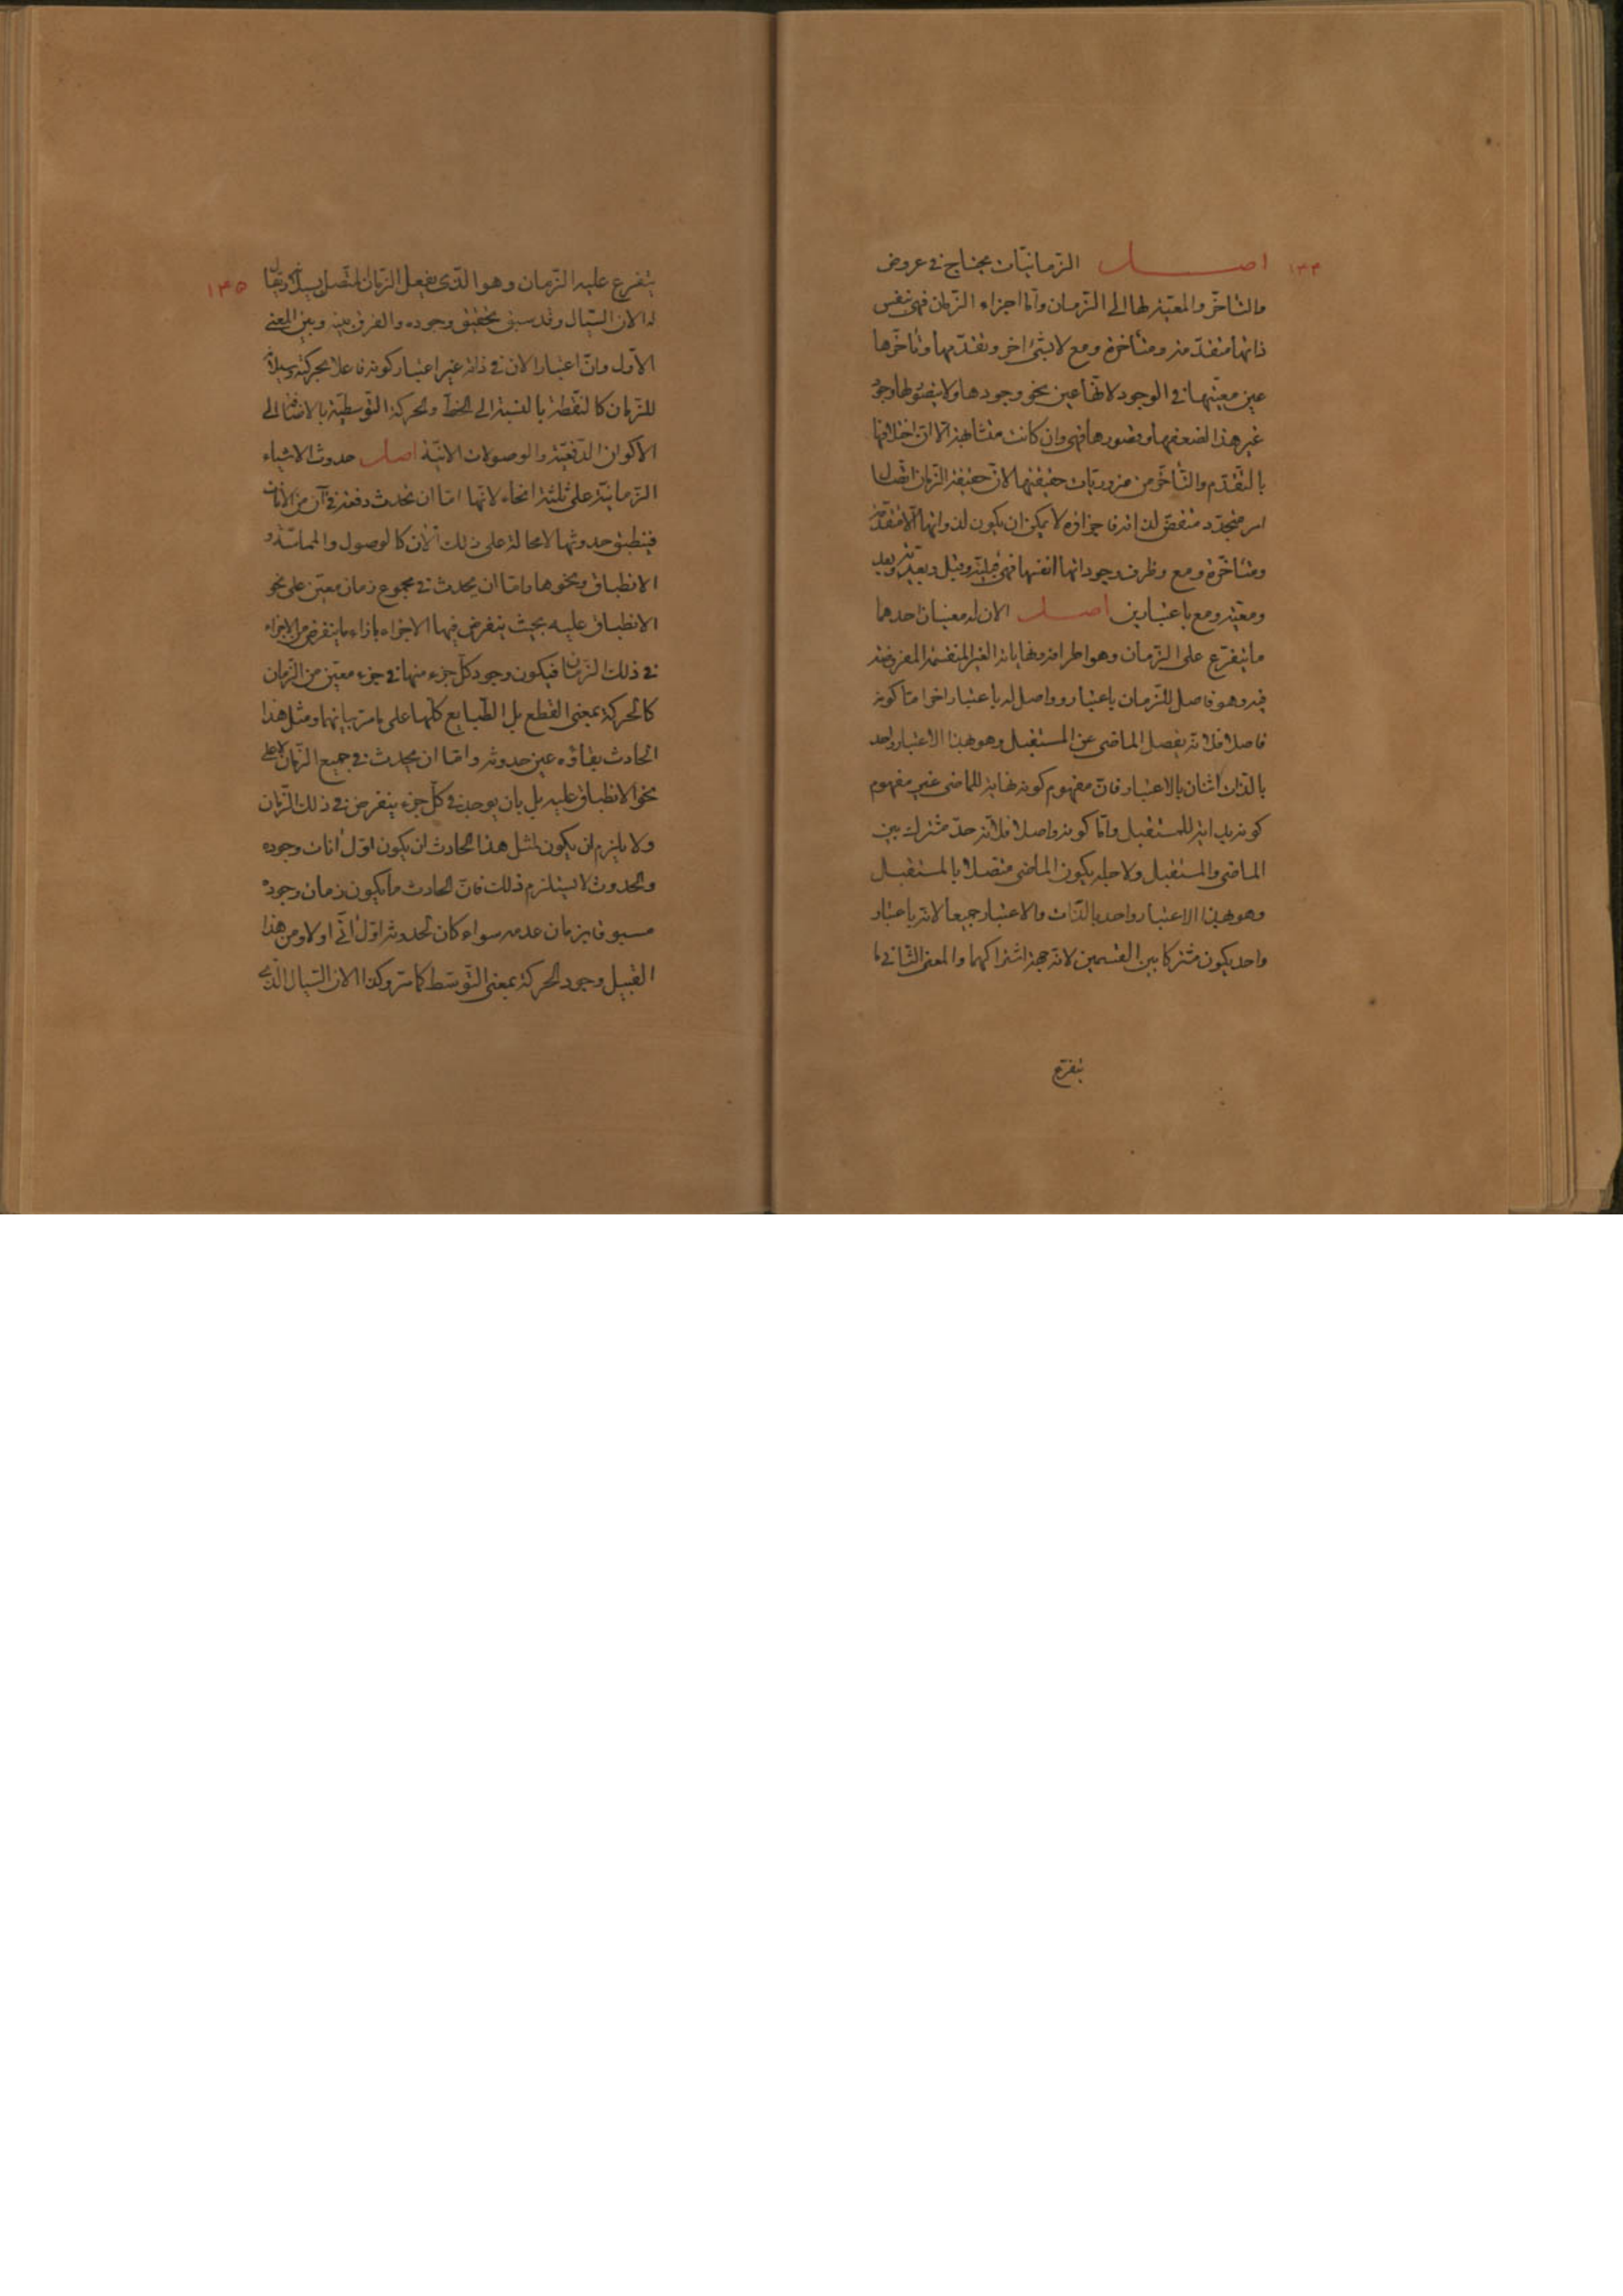 ١٣٤
اصل الزّمانيّات يحتاج في عروض
والتّأخّر والمعيّة لها الى الزّمان وامّا اجزاء الزّمان فهى بنفس
ذاتها متقدّمة ومتأخرة ومع لا بشئ اخر وتقدّمها وتأخّرها
عين معيّتها في الوجود لانّها عين نحو وجودها ولا يتصوّر لها وجود
غير هذا لضعفها وقصورها فهى وان كانت متشابهة الّا انّ اختلافها
بالتّقدّم والتّأخّر من ضروريّات حقيقتها لانّ حقيقة الزّمان اتّصال
امر متجدّد متقضّ لذاته فاجزاؤه لا يمكن ان يكون لذواتها الّا متقدّمة
ومتأخّرة ومع وظرف وجوداتها انفسها فهى قبليّة وقبل وبعديّة وبعد
ومعيّة ومع باعتبارين اصل الان له معنيان احدهما
ما يتفرّع على الزّمان وهو اطرافه ونهاياته الغير المنقسمة المفروضة
فيه وهو فاصل للزّمان باعتبار وواصل له باعتبار اخر امّا كونه
فاصلا فلانّه يفصل الماضى عن المستقبل وهو بهذا الاعتبار واحد
بالذات اثنان بالاعتبار فانّ مفهوم كونه نهاية للماضى غير مفهوم
كونه بداية للمستقبل وامّا كونه واصلا فلانّه حدّ مشترك بين
الماضى والمستقبل ولاجله يكون الماضى متصلا بالمستقبل
وهو بهذا الاعتبار واحد بالذّات والاعتبار جميعا لانّه باعتبار
واحد يكون مشتركا بين القسمين لانّه جهة اشتراكهما والمعنى الثّانى ما
يتفرّع
١٣٥
يتفرع عليه الزّمان وهو الّذى يفعل الزّمان المتّصل بسيلانه ويقال
له الان السّيال وقد سبق تحقيق وجوده والفرق بينه وبين المعنى
الاوّل وانّ اعتبار الان في ذاته غير اعتبار كونه فاعلا بحركته وسيلانه
للزّمان كالنّقطة بالنسبة الى الخطّ والحركة التّوسطيّة بالاضافة الى
الاكوان الدّفعيّة والوصولات الانيّة اصل حدوث الاشياء
الزّمانيّة على ثلثة انحاء لانّها امّا ان تحدث دفعة في آن من الانات
فينطبق حدوثها لا محالة على ذلك الان كالوصول والمماسّة و
الانطباق ونحوها وامّا ان يحدث في مجموع زمان معيّن على نحو
الانطباق عليه بحيث ينفرض فيها الاجزاء بازاء ما ينفرض من الاجزاء
في ذلك الزّمان فيكون وجود كلّ جزء منها في جزء معيّن من الزّمان
كالحركة بمعنى القطع بل الطّبايع كلّها على ما مرّ بيانها ومثل هذا
الحادث بقاؤه عين حدوثه وامّا ان يحدث في جميع الزّمان لا على
نحو الانطباق عليه بل بان يوجد في كلّ جزء ينفرض في ذلك الزّمان
ولا يلزم ان يكون لمثل هذا الحادث ان يكون اوّل انات وجوده
والحدوث لا يستلزم ذلك فانّ الحادث ما يكون زمان وجوده
مسبوقا بزمان عدمه سواء كان لحدوثه اوّل انّى اولا ومن هذا
القبيل وجود الحركة بمعنى التّوسّط كما مرّ وكذا الان السّيال الّذى